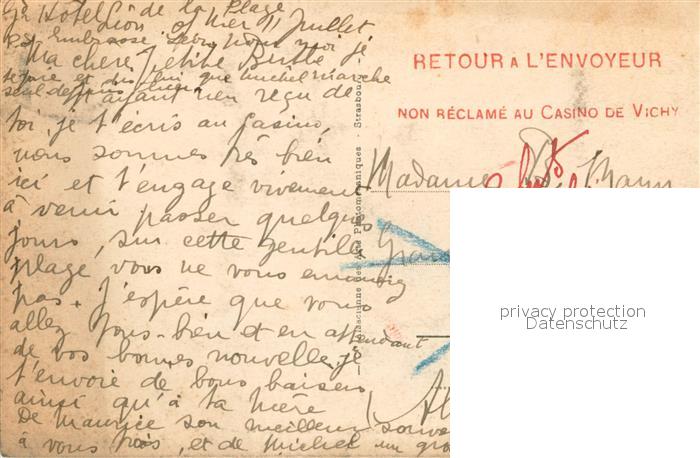 Gd Hotel de la Plage
Lion s/ Mer 11 Juillet
P.S. Embrasse pour moi je
Ma chère petite
et dis lui que Michel marche
seul depuis hier
N'ayant rien reçu de
toi, je t'écris au Casino,
nous sommes très bien
ici et t'engage vivement
à venir passer quelques
jours, sur cette gentille
plage vous ne vous ennuirez
pas. J'espère que vous
allez tous bien et en attendant
de vos bonnes nouvelles, je
t'envoie de bons baisers
ainsi qu'à ta mère
De Maurice son meilleur souve
à vous trois, et de Michel un gro
Strasbourg
Alsacienne des Arts Photomécaniques
RETOUR A L'ENVOYEUR
NON RÉCLAMÉ AU CASINO DE VICHY
Madame Mann
Gran
privacy protection
Datenschutz